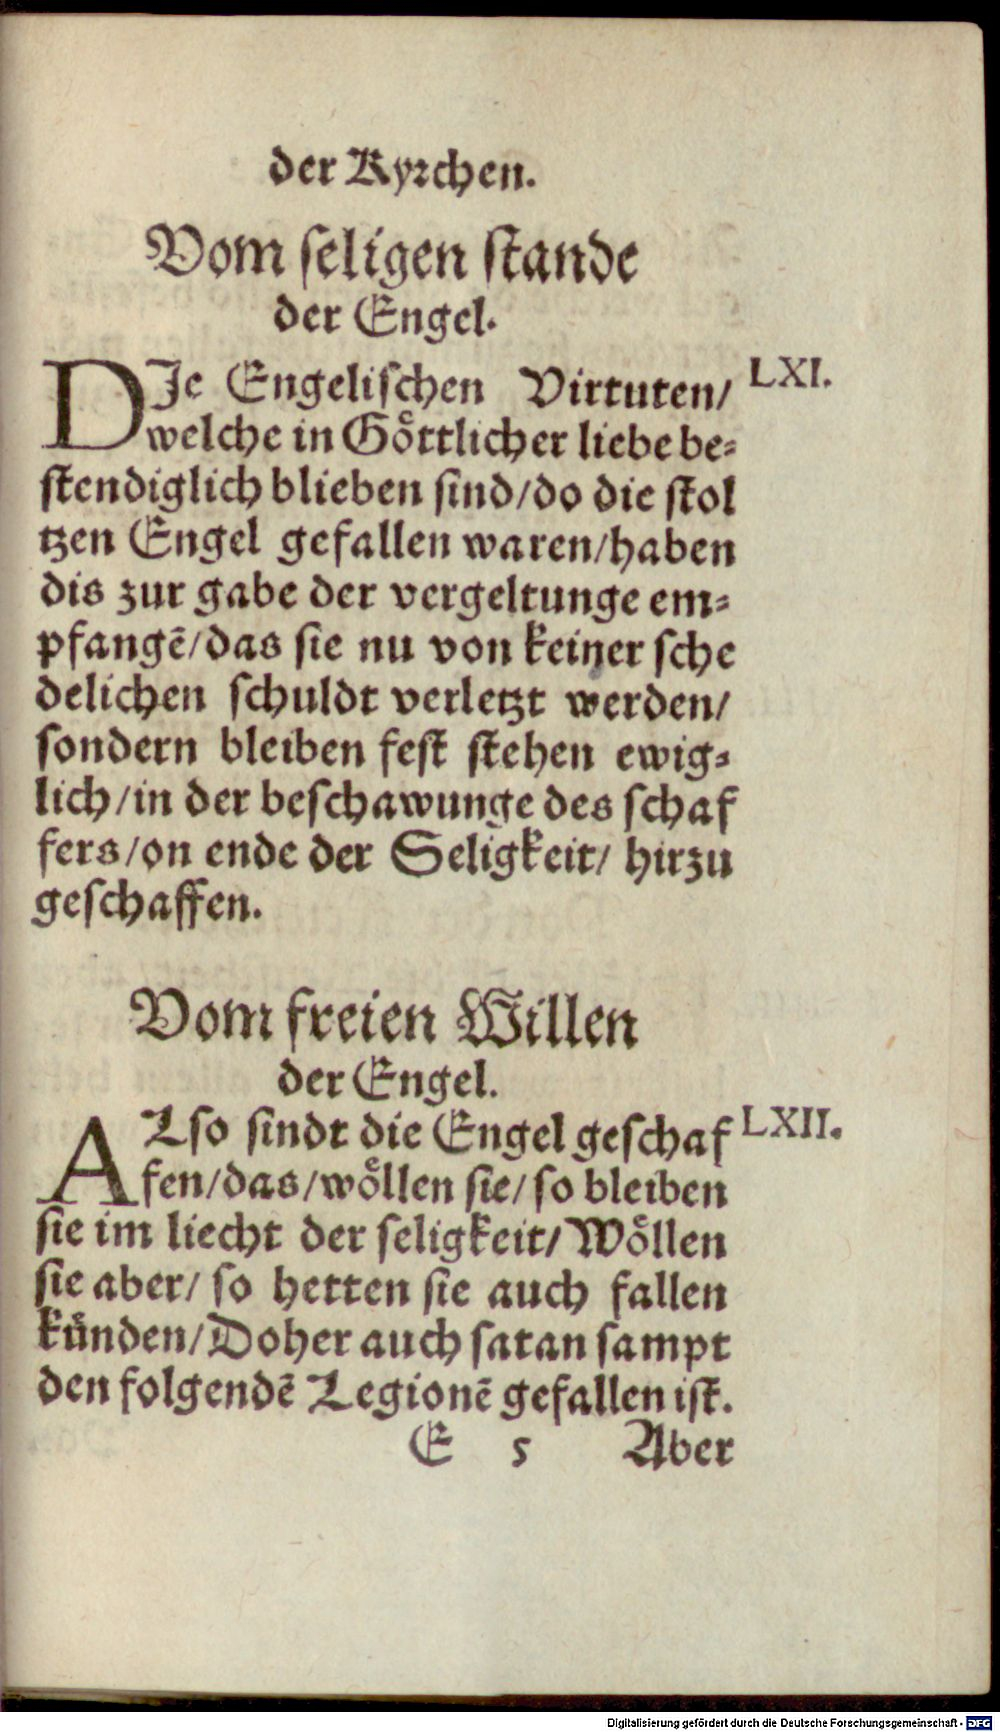 der Kyrchen.
Vom seligen stande
der Engel.
DJe Engelischen Virtuten/ LXI.
welche in Göttlicher liebe be=
stendiglich blieben sind/do die stol
tzen Engel gefallen waren/haben
dis zur gabe der vergeltunge em=
pfangē/das sie nu von keiner sche
delichen schuldt verletzt werden/
sondern bleiben fest stehen ewig=
lich/in der beschawunge des schaf
fers/on ende der Seligkeit/ hirzu
geschaffen.
Vom freien Willen
der Engel.
ALso sindt die Engel geschaf LXII.
fen/das/wöllen sie/so bleiben
sie im liecht der seligkeit/Wöllen
sie aber/ so hetten sie auch fallen
künden/Doher auch satan sampt
den folgendē Legionē gefallen ist.
E 5 Aber
Digitalisierung gefördert durch die Deutsche Forschungsgemeinschaft - DFG